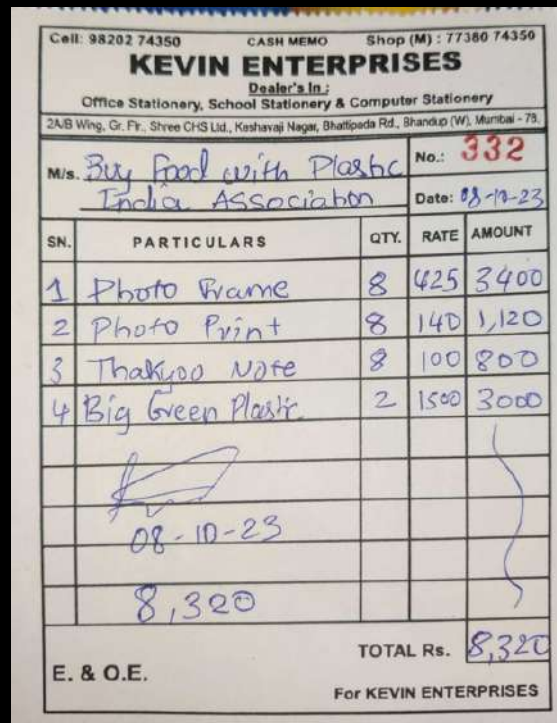 Cell: 98202 74350 CASH MEMO Shop (M) : 77380 74350
KEVIN ENTERPRISES
Dealer's In :
Office Stationary, School Stationery & Computer Stationery
2A/B Wing, Gr. Flr., Shree CHS Ltd., Keshavaji Nagar, Bhattipada Rd., Bhandup (W), Mumbai - 78.
M/s. Buy Food with Plastic No.: 332
India Association Date: 08-10-23
SN. PARTICULARS QTY. RATE AMOUNT
1 Photo Frame 8 425 3400
2 Photo Print 8 140 1,120
3 Thakyoo Note 8 100 800
4 Big Green Plastic 2 1500 3000
08-10-23
8,320
TOTAL Rs. 8,320
E. & O.E.
For KEVIN ENTERPRISES